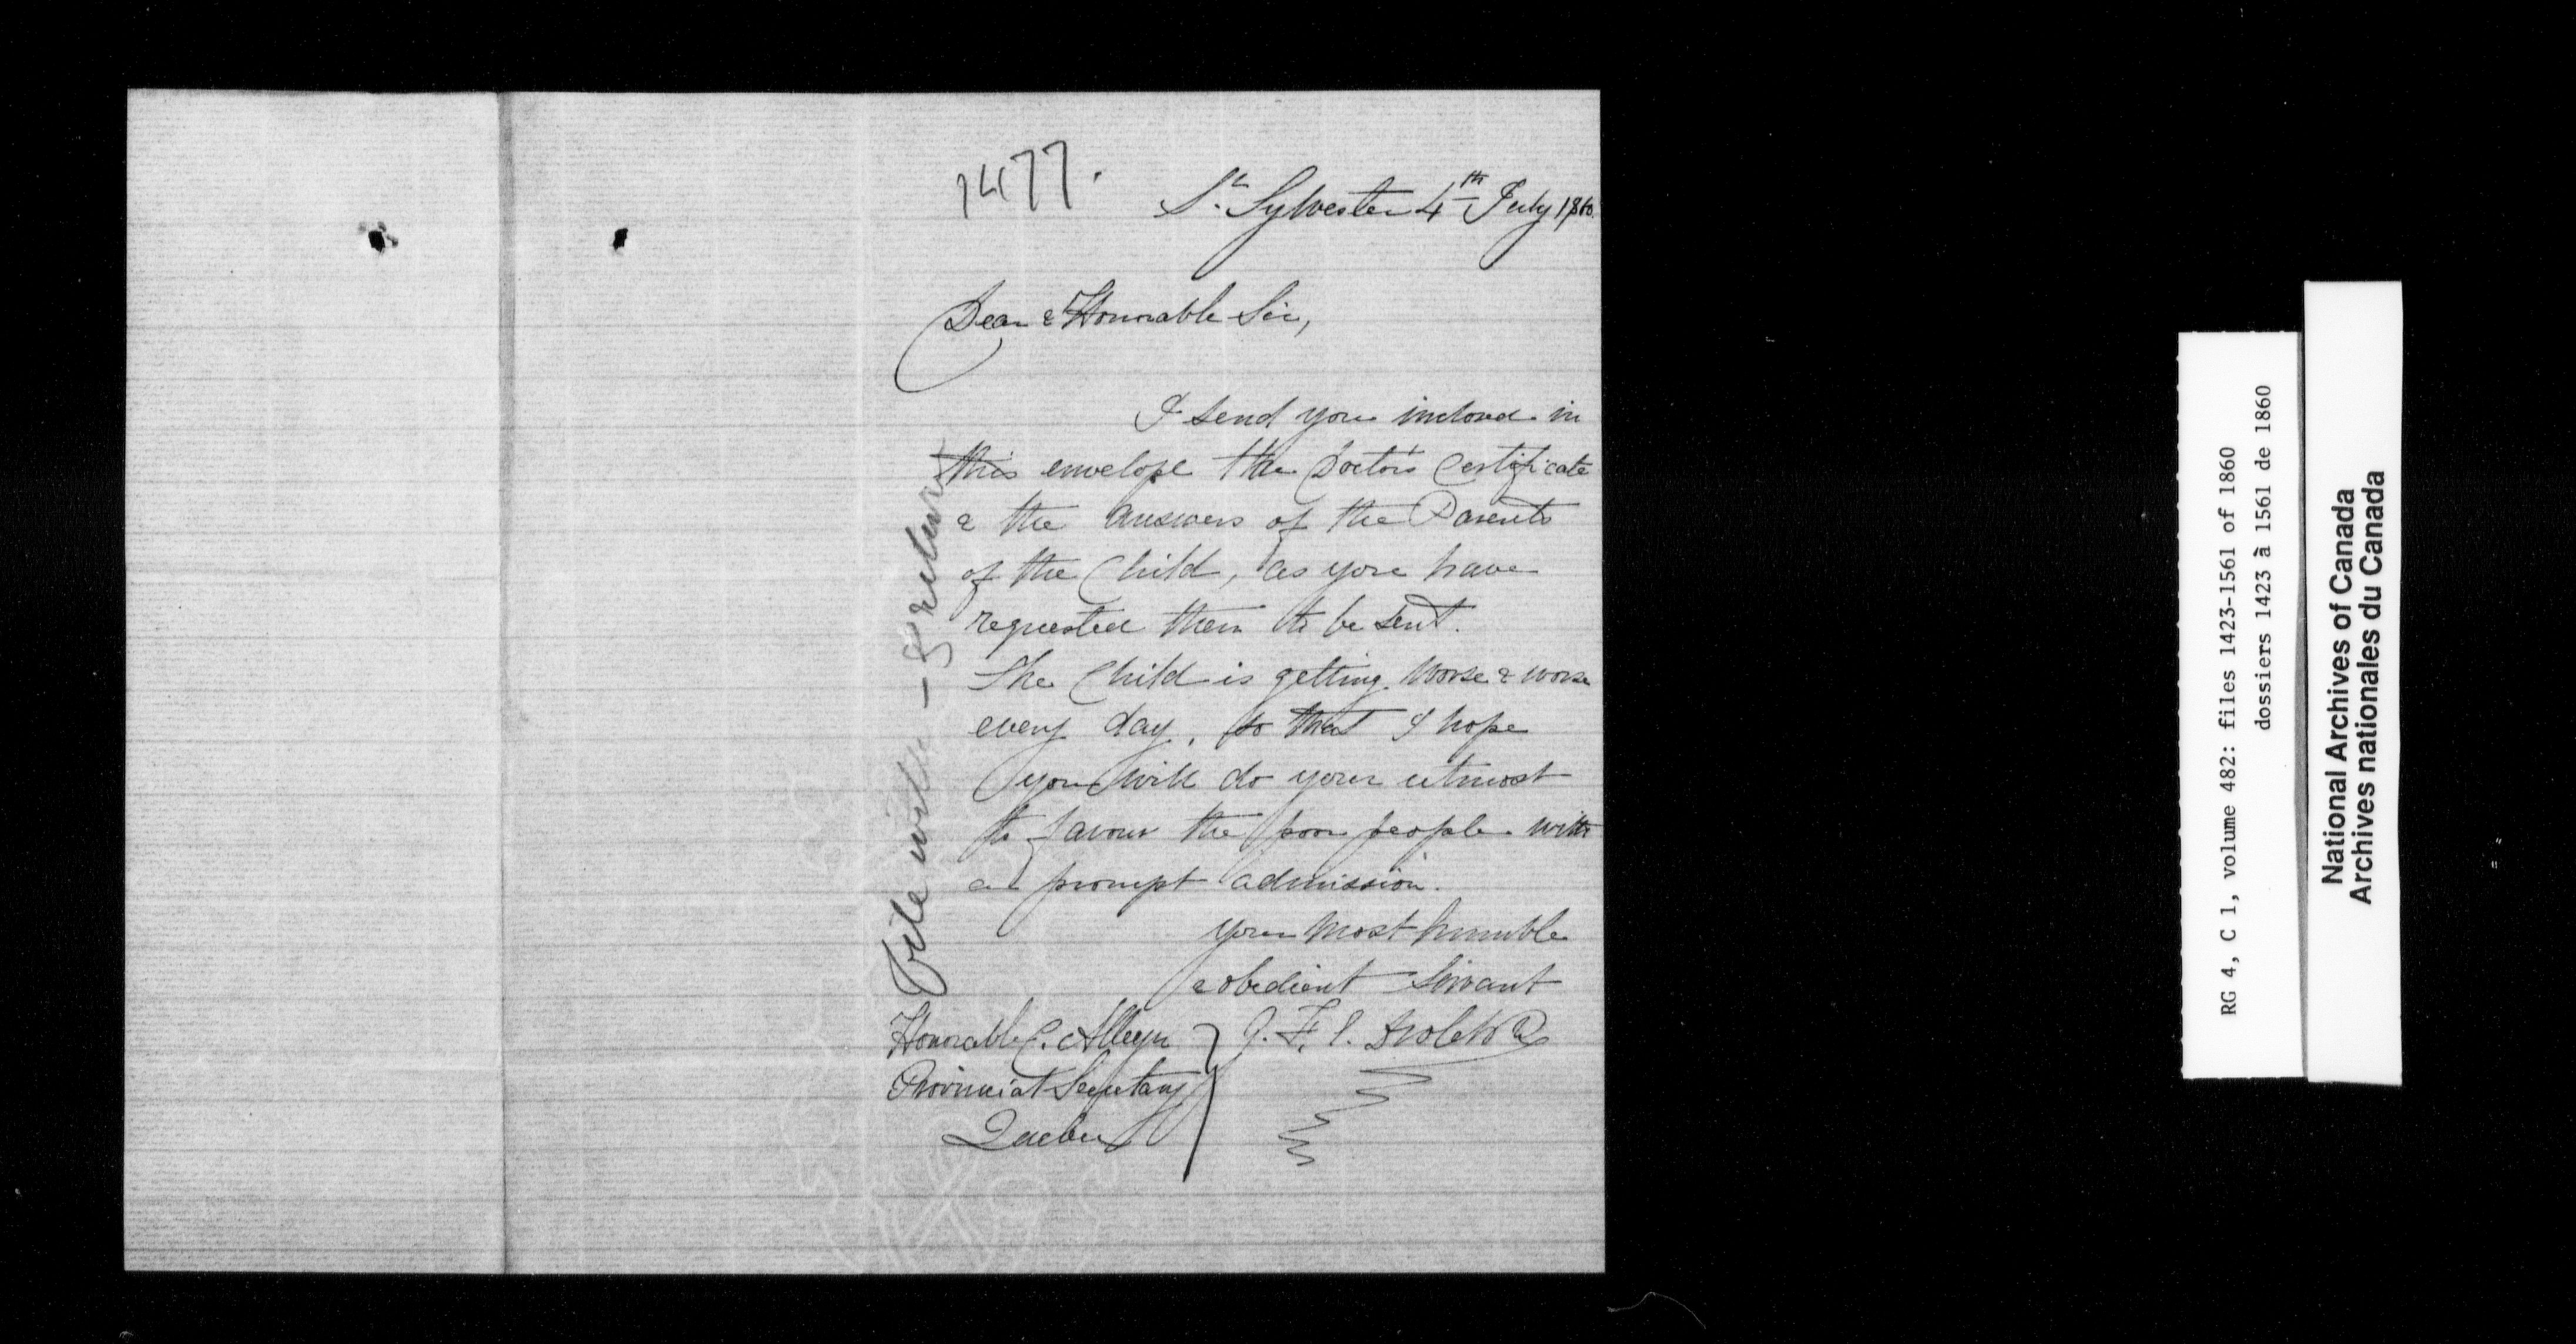 1477.
St. Sylvester 4th July 1860.
Dear & Honorable Sir,
I send you inclosed in
this envelope the Doctor's Certificate
& the answers of the Parents
of the Child, as you have
requested them to be sent.
The Child is getting worse & worse
every day, so that I hope
you will do your utmost
to favour the poor people with
a prompt admission.
your most humble
& obedient servant
J. F.
Honorable C. Alleyn
Provincial Secretary
Quebec
File with
RG 4, C 1, volume 482: files 1423-1561 of 1860
dossiers 1423 à 1561 de 1860
National Archives of Canada
Archives nationales du Canada